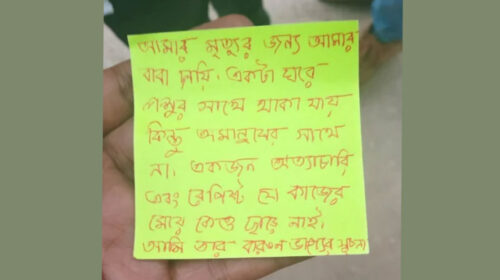 আমার মৃত্যুর জন্য আমার
বাবা দায়ি. একটা ঘরে
পশুর সাথে থাকা যায়
কিন্তু অমানুষের সাথে
না. একজন অত্যাচারি
এবং রেপিস্ট যে কাজের
মেয়ে কেও ছাড়ে নাই.
আমি তার করুন ভাগ্যের সূচনা